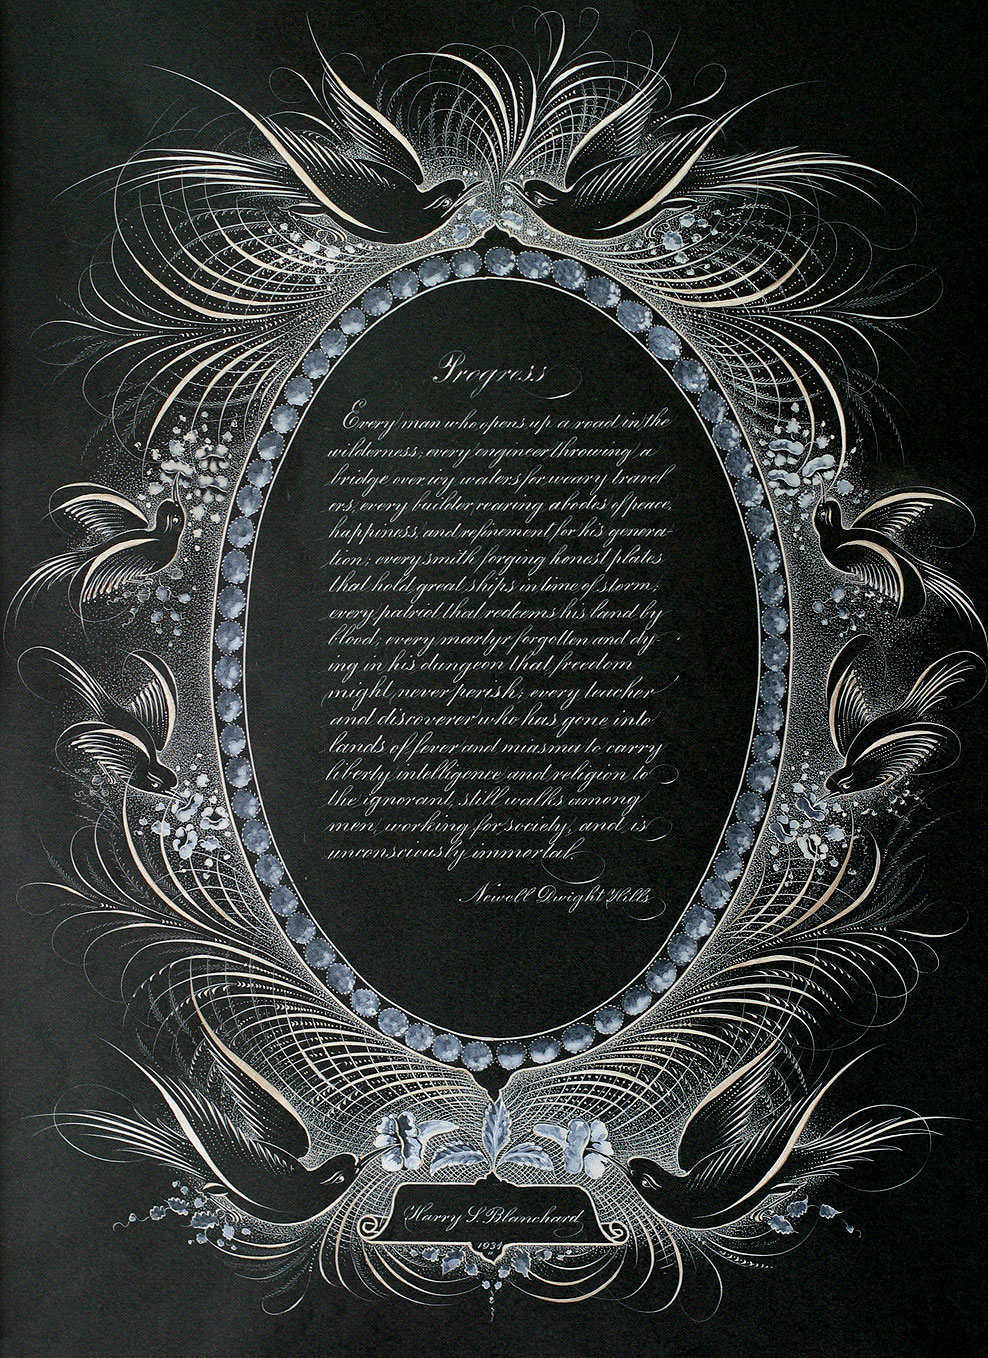 Progress
Every man who opens up a road in the
wilderness; every engineer throwing a
bridge over icy waters for weary travel
ers; every builder rearing abodes of peace,
happiness, and refinement for his genera-
tion; every smith forging honest plates
that hold great ships in time of storm;
every patriot that redeems his land by
blood; every martyr forgotten and dy-
ing in his dungeon that freedom
might never perish; every teacher
and discoverer who has gone into
lands of fever and miasma to carry
liberty intelligence and religion to
the ignorant, still walks among
men, working for society, and is
unconsciously immortal.
Newell Dwight Hills
Harry L. Blanchard
1934